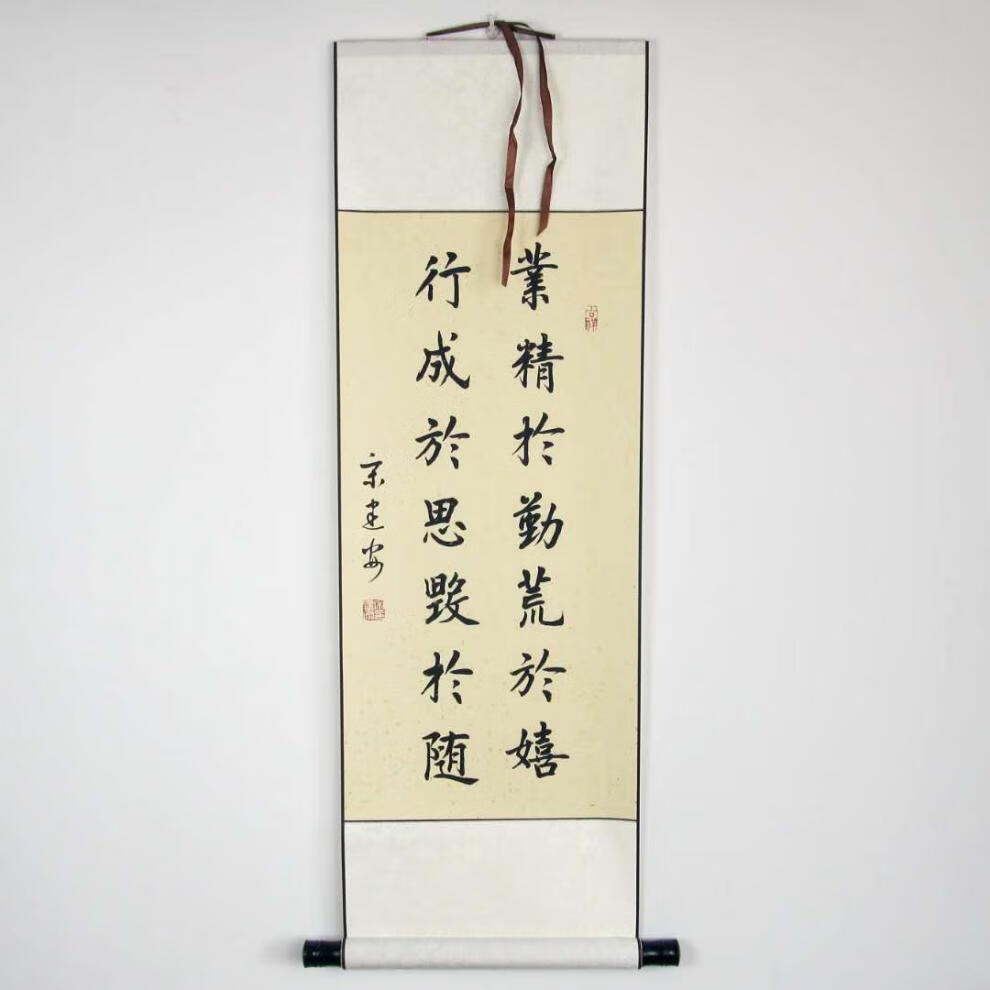 業精於勤荒於嬉
行成於思毀於随
宋建安